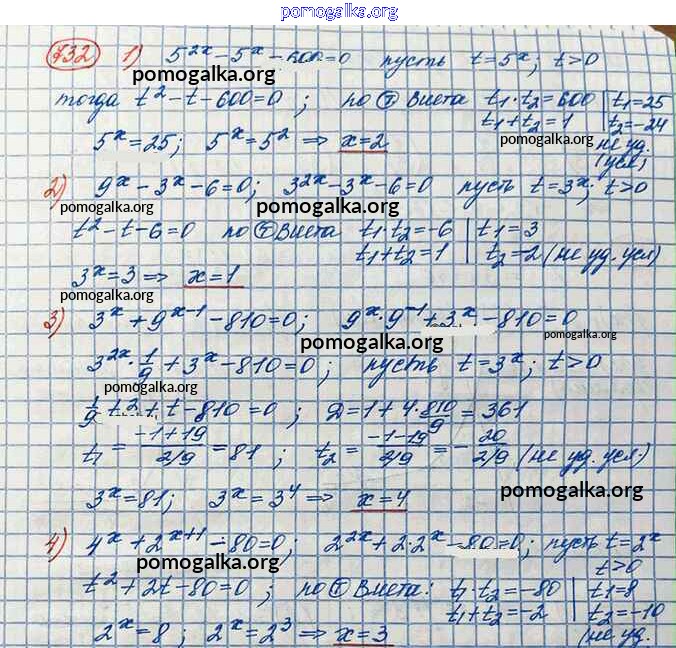 pomogalka.org
732 1) 5^{2x} - 5^x - 600 = 0 пусть t = 5^x; t > 0
pomogalka.org
тогда t² - t - 600 = 0; по Ⓣ Виета t₁·t₂ = 600 | t₁ = 25
t₁ + t₂ = 1 | t₂ = -24
5^x = 25; 5^x = 5² ⇒ x = 2 pomogalka.org не уд.
(усл)
2) 9^x - 3^x - 6 = 0; 3^{2x} - 3^x - 6 = 0 пусть t = 3^x; t > 0
pomogalka.org pomogalka.org
t² - t - 6 = 0 по Ⓣ Виета t₁·t₂ = -6 | t₁ = 3
t₁ + t₂ = 1 | t₂ = -2 (не уд. усл)
3^x = 3 ⇒ x = 1
pomogalka.org
3) 3^x + 9^{x-1} - 810 = 0; 9^x · 9^{-1} + 3^x - 810 = 0
pomogalka.org
3^{2x} · 1/9 + 3^x - 810 = 0; пусть t = 3^x; t > 0
pomogalka.org
1/9 t² + t - 810 = 0; D = 1 + 4 · 810/9 = 361
t₁ = (-1+19)/(2/9) = 81; t₂ = (-1-19)/(2/9) = -20/(2/9) (не уд. усл.)
3^x = 81; 3^x = 3⁴ ⇒ x = 4 pomogalka.org
4) 4^x + 2^{x+1} - 80 = 0; 2^{2x} + 2·2^x - 80 = 0; пусть t = 2^x
pomogalka.org t > 0
t² + 2t - 80 = 0; по Ⓣ Виета: t₁·t₂ = -80 | t₁ = 8
t₁ + t₂ = -2 | t₂ = -10
2^x = 8; 2^x = 2³ ⇒ x = 3 (не уд.
pomogalka.org